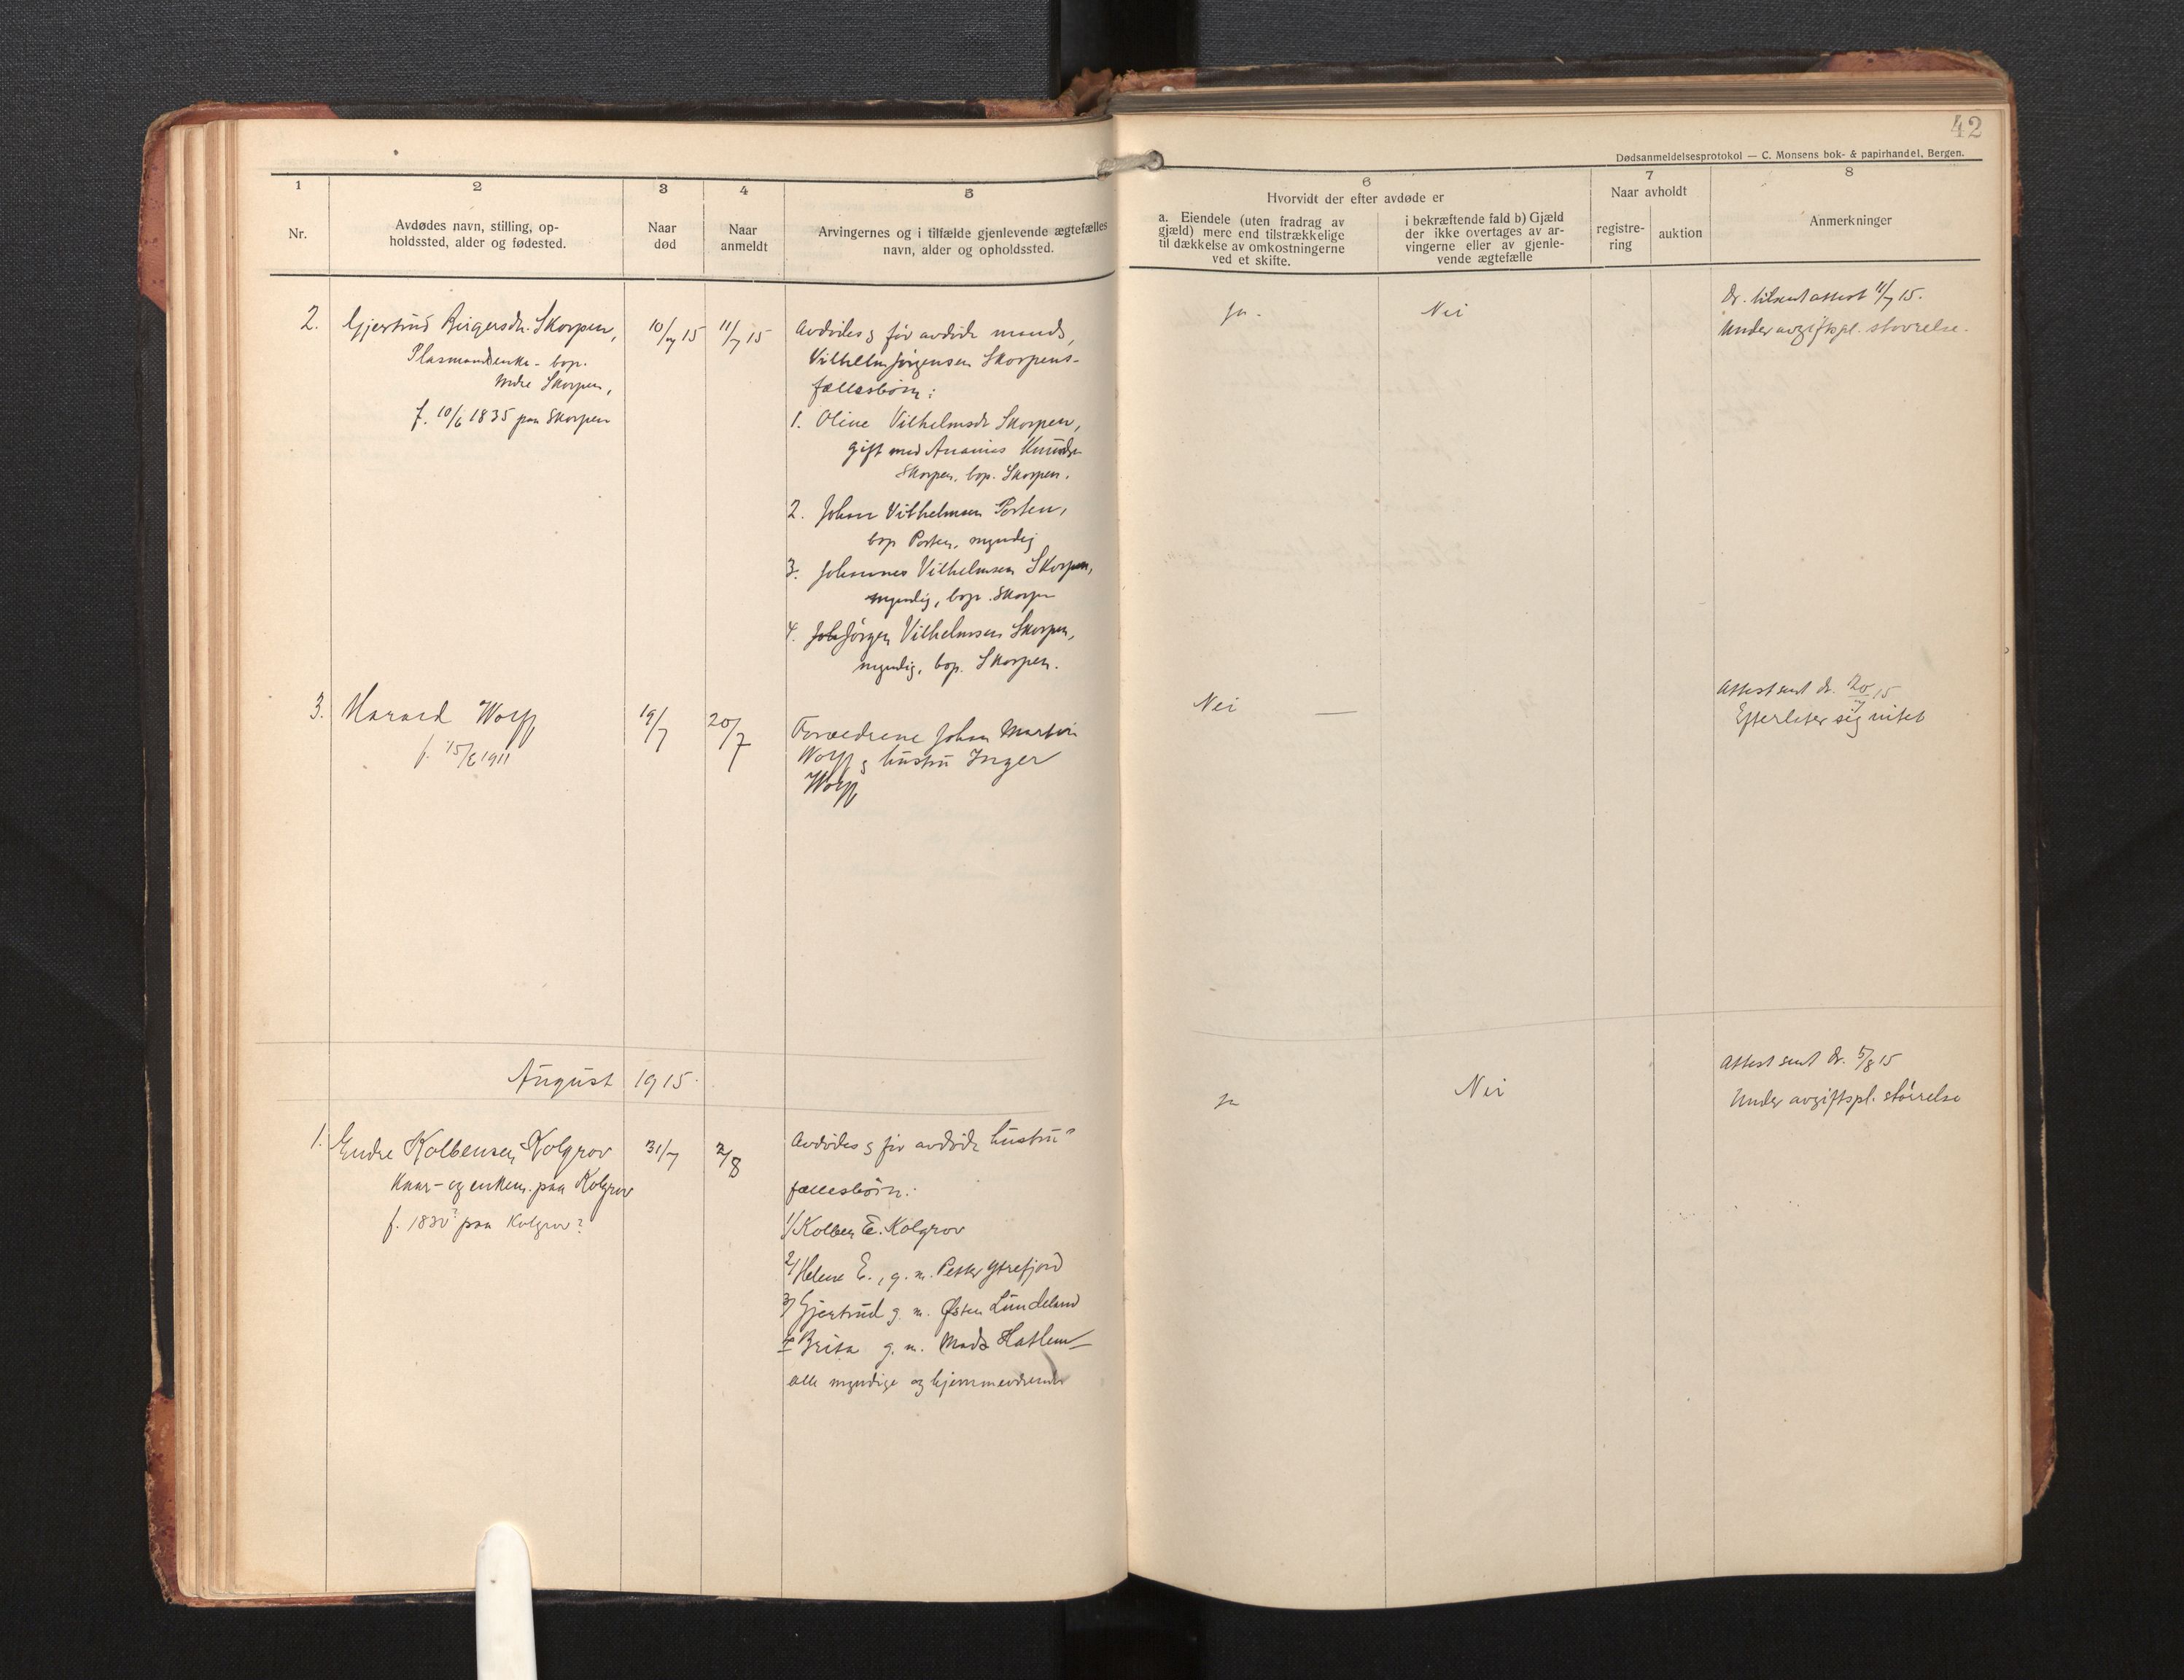 42
Dødsanmeldelsesprotokol — C. Monsens bok- & papirhandel, Bergen.
1
Nr.
2
Avdødes navn, stilling, op-
holdssted, alder og fødested.
3
Naar
død
4
Naar
anmeldt
5
Arvingernes og i tilfælde gjenlevende ægtefælles
navn, alder og opholdssted.
6
Hvorvidt der efter avdøde er
a. Eiendele (uten fradrag av
gjæld) mere end tilstrækkelige
til dækkelse av omkostningerne
ved et skifte.
i bekræftende fald b) Gjæld
der ikke overtages av ar-
vingerne eller av gjenle-
vende ægtefælle
7
Naar avholdt
registre-
ring
auktion
8
Anmerkninger
2. Gjertrud Birgersdr. Skorpen,
Plasmandsenke - bop.
Indre Skorpen,
f. 10/6 1835 paa Skorpen
10/7 15
11/7 15
Avdødes og før avdøde mands,
Vilhelm Jørgensen Skorpens-
fællesbørn:
1. Oline Vilhelmsdr Skorpen,
gift med Ananias Knudsen
Skorpen, bop. Skorpen.
2. Johan Vilhelmsen Porten,
bop Porten, myndig
3. Johannes Vilhelmsen Skorpen,
myndig, bop. Skorpen
4. Joh Jörgen Vilhelmsen Skorpen,
myndig, bop. Skorpen.
Ja.
Nei
Dr. tilsendt attest 11/7 15.
Under avgiftspl. størrelse.
3. Harald Wolff
f. 15/6 1911
19/7
20/7
Forældrene Johan Martin
Wolff og hustru Inger
Wolff
Nei —
Attest sent dr. 20/7 15
Efterlater sig intet
August 1915.
1. Endre Kolbensen Kolgrov
Kaar- og enkem. paa Kolgrov
f. 1830? paa Kolgrov?
31/7
2/8
Avdødes og før avdøde hustru's
fællesbörn:
1/ Kolben E. Kolgrov
2/ Helene E., g. m. Petter Ytrefjord
3/ Gjertrud g. m. Østen Lundeland
4 Brita g. m. Mads Hatlem
alle myndige og hjemmeværende
Ja
Nei
Attest sent dr. 5/8 15
Under avgiftspl. størrelse